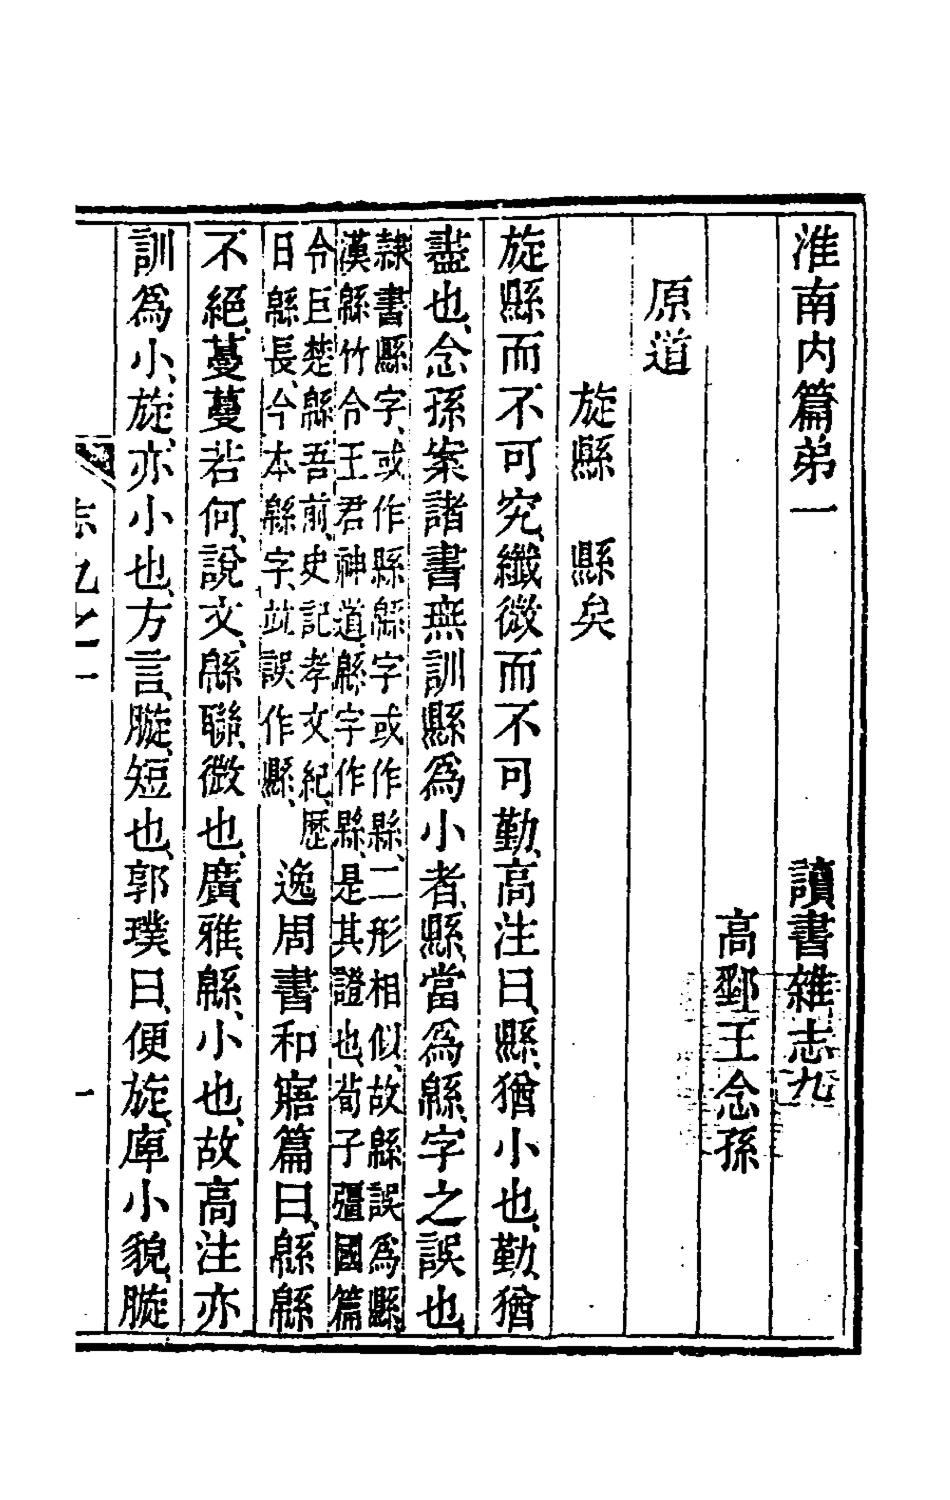 淮南内篇弟一　讀書雜志九
高郵王念孫
原道
旋縣　縣矣
旋縣而不可究、纖微而不可勤、高注曰、縣、猶小也、勤、猶
盡也、念孫案諸書無訓縣爲小者、縣、當爲緜、字之誤也、
隸書縣字、或作縣緜字或作縣、二形相似、故緜誤爲縣、
漢緜竹令王君神道、緜字作縣、是其證也、荀子彊國篇
令巨楚緜吾前、史記孝文紀、歷
日緜長、今本緜字竝誤作縣、
逸周書和寤篇曰、緜緜
不絕、蔓蔓若何、說文、緜聯、微也、廣雅、緜、小也、故高注亦
訓爲小、旋、亦小也、方言、短也、郭璞曰、便旋、庳小貌、
志九之一　一